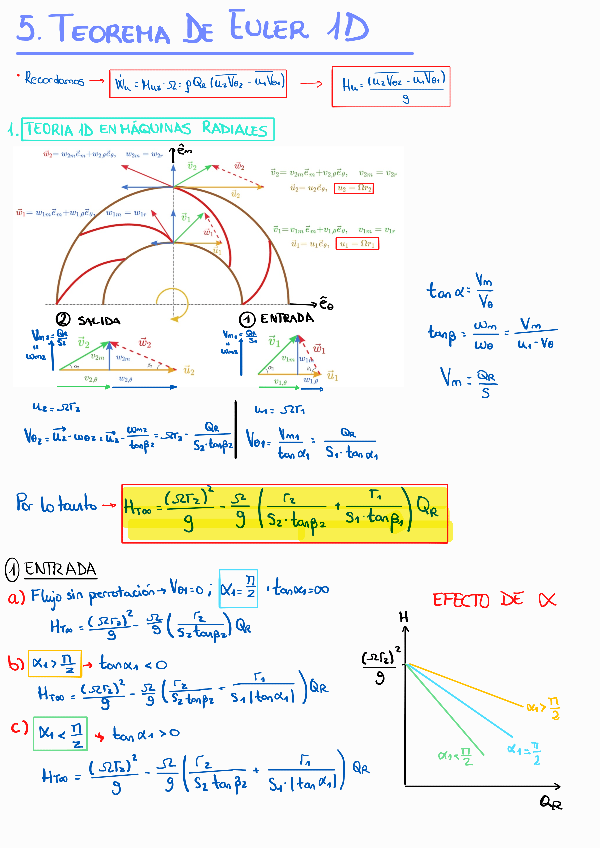 5. TEOREMA DE EULER 1D
• Recordamos → Ẇu = Muz · Ω = ρQR (u2Vθ2 - u1Vθ1) → Hu = (u2Vθ2 - u1Vθ1) / g
1. TEORÍA 1D EN MÁQUINAS RADIALES
êm
w⃗2 = w2m e⃗m + w2,θ e⃗θ, w2m = w2r
v⃗2 w⃗2 u⃗2
v⃗2 = v2m e⃗m + v2,θ e⃗θ, v2m = v2r
u⃗2 = u2 e⃗θ, u2 = Ωr2
w⃗1 = w1m e⃗m + w1,θ e⃗θ, w1m = w1r
v⃗1 w⃗1 u⃗1
v⃗1 = v1m e⃗m + v1,θ e⃗θ, v1m = v1r
u⃗1 = u1 e⃗θ, u1 = Ωr1
êθ
② SALIDA
① ENTRADA
v⃗2 v2m w⃗2 u⃗2
v2,θ w2,θ
v⃗1 v1m w⃗1 u⃗1
v1,θ w1,θ
tanα = Vm / Vθ
tanβ = wm / wθ = Vm / (u1 - Vθ)
Vm = QR / S
u2 = Ωr2
Vθ2 = u⃗2 - wθ2 = u⃗2 - wm2 / tanβ2 = Ωr2 - QR / (S2·tanβ2)
u1 = Ωr1
Vθ1 = Vm1 / tanα1 = QR / (S1·tanα1)
Por lo tanto → HT∞ = (Ωr2)² / g - Ω / g ( r2 / (S2·tanβ2) + r1 / (S1·tanβ1) ) QR
① ENTRADA
a) Flujo sin prerrotación → Vθ1=0 ; α1 = π/2 , tanα1 = ∞
HT∞ = (Ωr2)² / g - Ω / g ( r2 / (S2 tanβ2) ) QR
b) α1 > π/2 → tanα1 < 0
HT∞ = (Ωr2)² / g - Ω / g ( r2 / (S2 tanβ2) - r1 / (S1 |tanα1|) ) QR
c) α1 < π/2 → tanα1 > 0
HT∞ = (Ωr2)² / g - Ω / g ( r2 / (S2 tanβ2) + r1 / (S1·|tanα1|) ) QR
EFECTO DE α
H
(Ωr2)² / g
α1 > π/2
α1 = π/2
α1 < π/2
QR